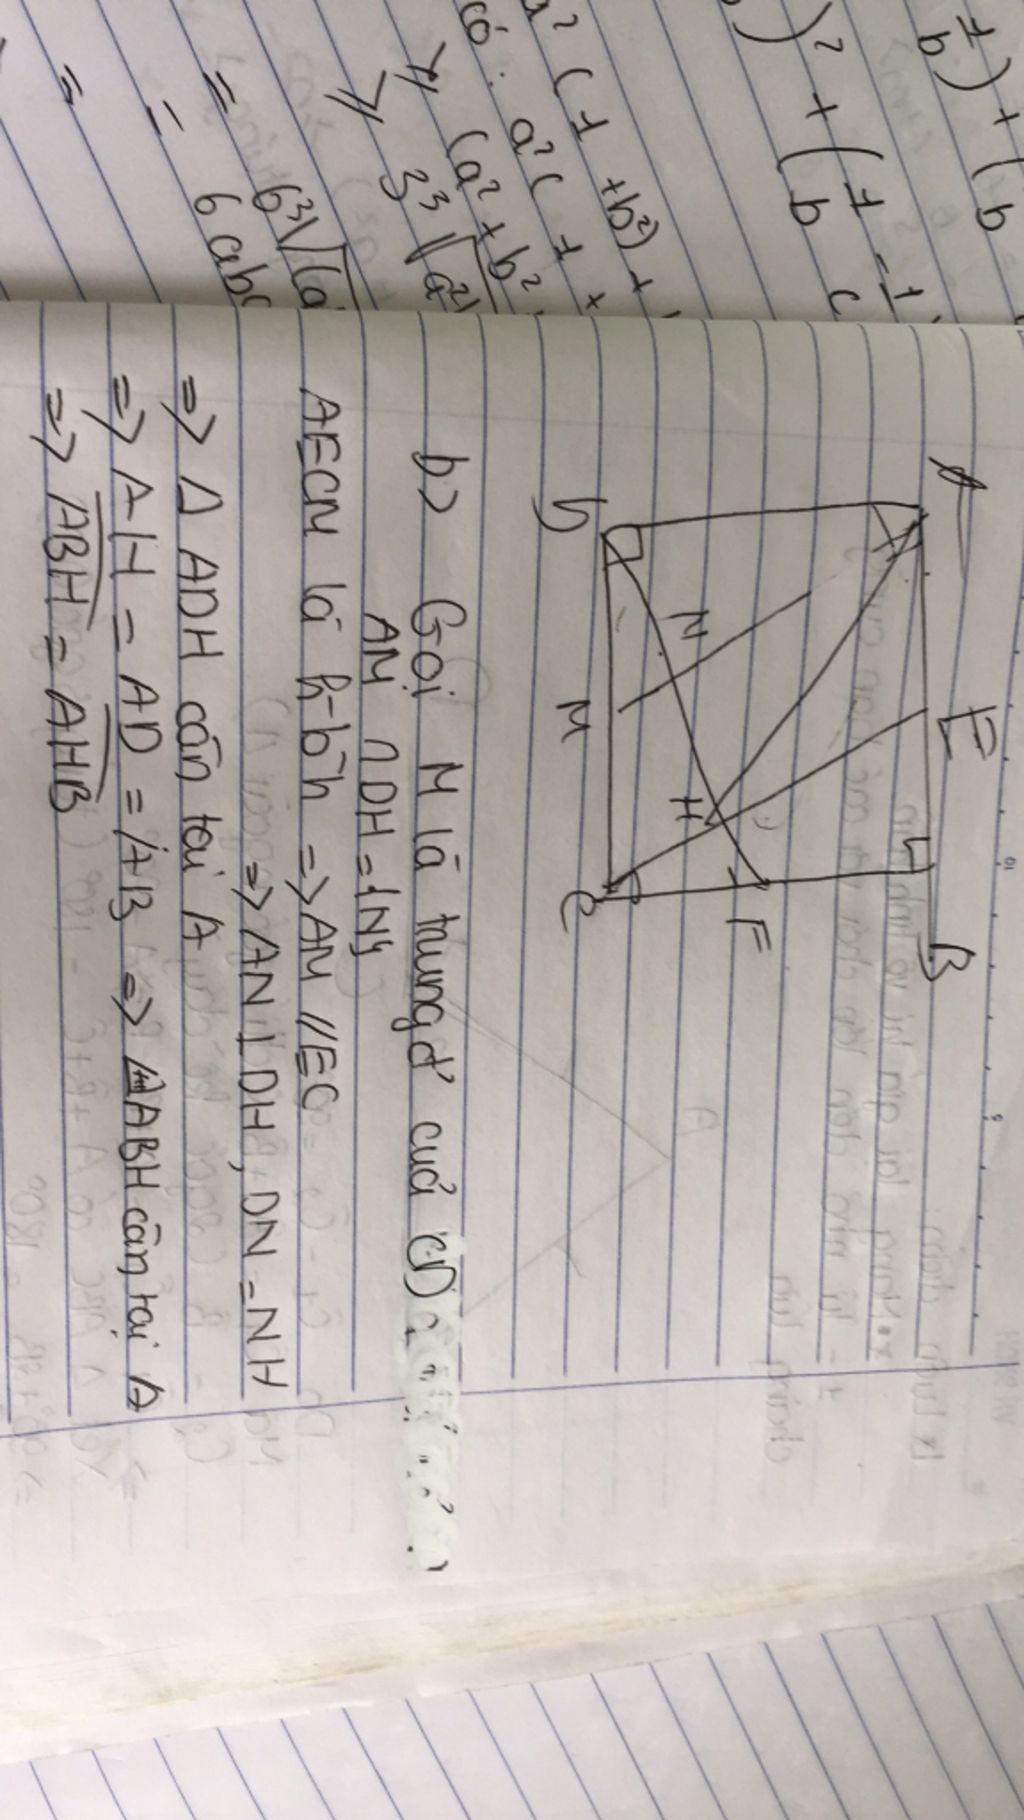 1/b) + (
b
)² + (1/b - 1/c
a² (1 + b²) +
có : a² ( 1 +
≥ (a² + b²
≥ 3 ³√a²
= 6 ³√(a
= 6 abc
=
A E B
H
F
N
D M C
b) Gọi M là trung đ' của CD
AM ∩ DH = {N}
AECM là h-b-h => AM // EC
=> AN ⊥ DH, DN = NH
=> Δ ADH cân tại A
=> AH = AD = AB => ΔABH cân tại A
=> ABH = AHB